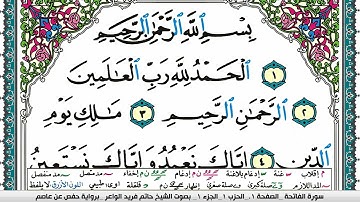 بِسْمِ ٱللَّهِ ٱلرَّحْمَٰنِ ٱلرَّحِيمِ
ٱلْحَمْدُ لِلَّهِ رَبِّ ٱلْعَٰلَمِينَ ١
ٱلرَّحْمَٰنِ ٱلرَّحِيمِ ٢ مَٰلِكِ يَوْمِ ٣
ٱلدِّينِ ٤ إِيَّاكَ نَعْبُدُ وَإِيَّاكَ نَسْتَعِينُ
سورة الفاتحة _ الصفحة 1 _ الحزب 1 _ الجزء 1 _ بصوت الشيخ حاتم فريد الواعر _ برواية حفص عن عاصم